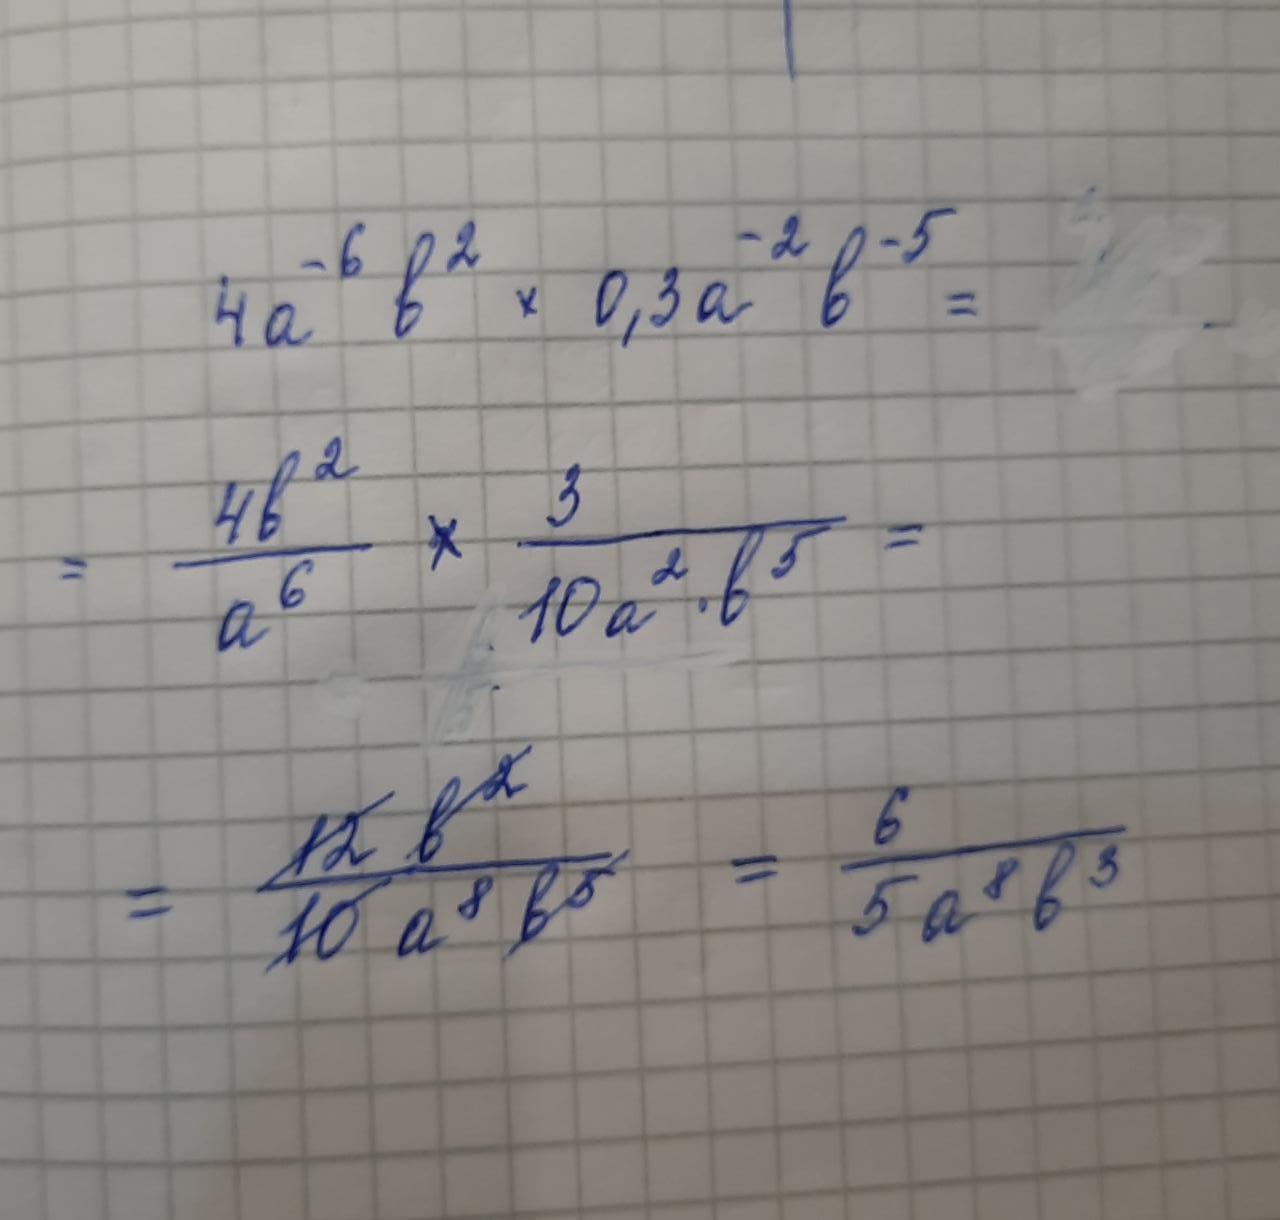 4a⁻⁶ b² × 0,3a⁻² b⁻⁵ =
= 4b²/a⁶ × 3/(10a² · b⁵) =
= 12 b²/(10 a⁸ b⁵) = 6/(5a⁸ b³)